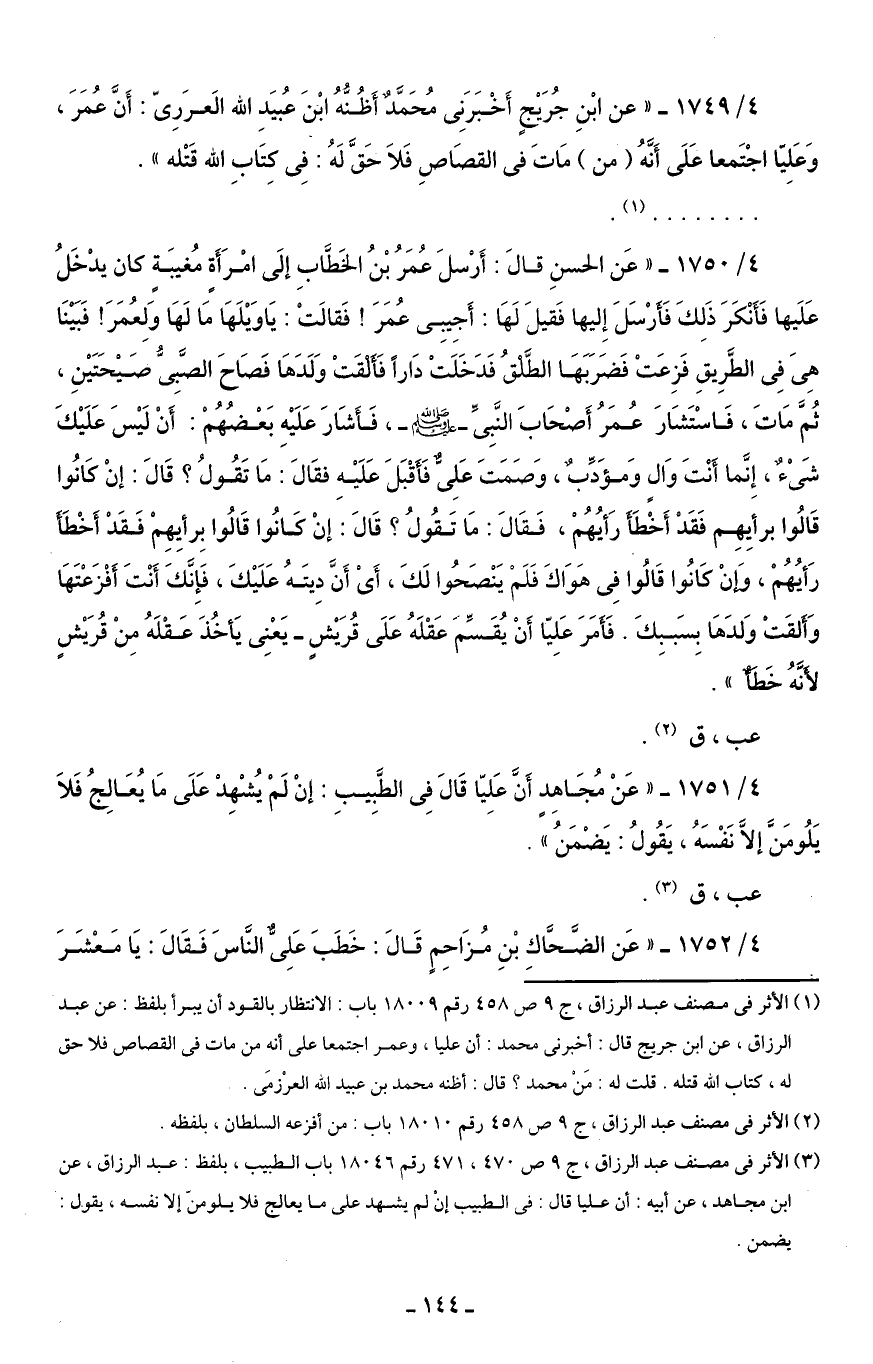 ٤/ ١٧٤٩ ـ « عن ابْنِ جُرَيْجٍ أَخْبَرَنِى مُحَمَّدٌ أَظُنُّهُ ابْنَ عُبَيَدِ الله العَرَرِىّ : أَنَّ عُمَرَ ،
وَعَلِيّا اجْتَمعا عَلَى أَنَّهُ ( من ) مَاتَ فى القصَاصِ فَلاَ حَقَّ لَهُ : فِى كِتَابِ الله قَتْله » .
. . . . . . . . (١) .
٤/ ١٧٥٠ ـ « عَن الحسنِ قالَ : أَرْسلَ عُمَرُ بْنُ الخَطَّاب إلَى امْرَأَةٍ مُغيبَةٍ كان يدْخَلُ
عَلَيها فَأَنْكَرَ ذَلكَ فَأَرْسَلَ إليها فَقيلَ لَهَا : أَجيبِى عُمَرَ ! فَقالَتْ : يَاوَيْلَهَا مَا لَهَا وَلعُمَرَ! فَبَيْنَا
هِىَ فِى الطَّرِيقِ فَزعَتْ فَضرَبَهَا الطَّلْقُ فَدَخَلَتْ دَاراً فَأَلْقَتْ وَلَدَهَا فَصاحَ الصَّبِىُّ صَيْحَتَيْنِ ،
ثُمَّ مَاتَ ، فَاسْتشَارَ عُمَرُ أَصْحَابَ النَّبِىِّ ـ ﷺ ـ ، فَأشَارَ عَلَيْهِ بَعْضُهُمْ : أَنْ لَيْسَ عَلَيْكَ
شَىْءٌ ، إنَّما أَنْتَ وَالٍ وَمؤَدِّبٌ ، وَصَمَتَ عَلىٌّ فَأَقْبَلَ عَلَيْهِ فقَالَ : مَا تَقُولُ ؟ قالَ : إنْ كَانُوا
قَالُوا برأيهِم فَقَدْ أَخْطَأَ رَأيُهُمْ ، فَقَالَ : مَا تَقُولُ ؟ قَالَ : إنْ كَانُوا قَالُوا برأيهِمْ فَقَدْ أَخْطَأَ
رَأيُهُمْ ، وَإنْ كَانُوا قَالُوا فِى هَوَاكَ فَلَمْ يَنْصَحُوا لَكَ ، أَىْ أَنَّ ديتَهُ عَلَيْكَ ، فَإنَّكَ أَنْتَ أَفْزَعْتَهَا
وَأَلقَتْ وَلَدَهَا بِسَبَبِكَ . فَأَمَرَ عَلِيّا أَنْ يُقَسِّمَ عَقْلَهُ عَلَى قُرَيْشٍ ـ يَعْنِى يَأخُذَ عَقْلَهُ مِنْ قُرَيْشٍ
لأَنَّهُ خَطَأٌ » .
عب ، ق (٢) .
٤/ ١٧٥١ ـ « عَنْ مُجَاهِدٍ أَنَّ عَلِيّا قَالَ فِى الطَّبِيبِ : إنْ لَمْ يُشْهِدْ عَلَى مَا يُعَالِجُ فَلاَ
يَلُومَنَّ إلاَّ نَفْسَهُ ، يَقُولُ : يَضْمَنُ » .
عب ، ق (٣) .
٤/ ١٧٥٢ ـ « عَن الضَّحَّاكِ بْنِ مُزَاحِمٍ قَالَ : خَطَبَ عَلِىٌّ النَّاسَ فَقَالَ : يَا مَعْشَرَ
(١) الأثر فى مصنف عبد الرزاق ، ج ٩ ص ٤٥٨ رقم ١٨٠٠٩ باب : الانتظار بالقود أن يبرأ بلفظ : عن عبد
الرزاق ، عن ابن جريج قال : أخبرنى محمد : أن عليا ، وعمر اجتمعا على أنه من مات فى القصاص فلا حق
له ، كتاب الله قتله . قلت له : مَنْ محمد ؟ قال : أظنه محمد بن عبيد الله العرْزمَى .
(٢) الأثر فى مصنف عبد الرزاق ، ج ٩ ص ٤٥٨ رقم ١٨٠١٠ باب : من أفزعه السلطان ، بلفظه .
(٣) الأثر فى مصنف عبد الرزاق ، ج ٩ ص ٤٧٠ ، ٤٧١ رقم ١٨٠٤٦ باب الطبيب ، بلفظ : عبد الرزاق ، عن
ابن مجاهد ، عن أبيه : أن عليا قال : فى الطبيب إنْ لم يشهد على ما يعالج فلا يلومنّ إلا نفسه ، يقول :
يضمن .
ـ ١٤٤ ـ